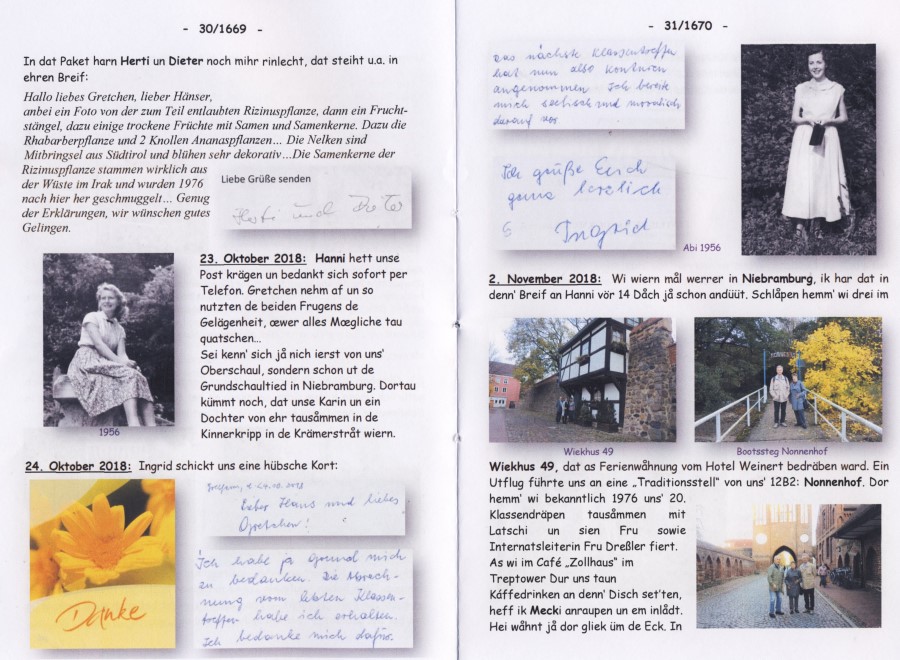 - 30/1669 -
In dat Paket harn Herti un Dieter noch mihr rinlecht, dat steiht u.a. in
ehren Breif:
Hallo liebes Gretchen, lieber Hänser,
anbei ein Foto von der zum Teil entlaubten Rizinuspflanze, dann ein Frucht-
stängel, dazu einige trockene Früchte mit Samen und Samenkerne. Dazu die
Rhabarberpflanze und 2 Knollen Ananaspflanzen… Die Nelken sind
Mitbringsel aus Südtirol und blühen sehr dekorativ…Die Samenkerne der
Rizinuspflanze stammen wirklich aus
der Wüste im Irak und wurden 1976
nach hier her geschmuggelt… Genug
der Erklärungen, wir wünschen gutes
Gelingen.
Liebe Grüße senden
Herti und Dieter
23. Oktober 2018: Hanni hett unse
Post krägen un bedankt sich sofort per
Telefon. Gretchen nehm af un so
nutzten de beiden Frugens de
Gelägenheit, œwer alles Mœgliche tau
quatschen…
Sei kenn' sich jå nich ierst von uns'
Oberschaul, sondern schon ut de
Grundschaultied in Niebramburg. Dortau
kümmt noch, dat unse Karin un ein
Dochter von ehr tausåmmen in de
Kinnerkripp in de Krämerstråt wiern.
1956
24. Oktober 2018: Ingrid schickt uns eine hübsche Kort:
Danke
Lieber Hans und liebes
Gretchen!
Ich habe ja Grund mich
zu bedanken. Die Abrech-
nung vom letzten Klassen-
treffen habe ich erhalten.
Ich bedanke mich dafür.
- 31/1670 -
Das nächste Klassentreffen
hat nun also Konturen
angenommen. Ich bereite
mich seelisch und moralisch
darauf vor.
Ich grüße Euch
ganz herzlich
Ingrid
Abi 1956
2. November 2018: Wi wiern mål werrer in Niebramburg, ik har dat in
denn' Breif an Hanni vör 14 Dåch jå schon andüüt. Schlåpen hemm' wi drei im
Wiekhus 49
Bootssteg Nonnenhof
Wiekhus 49, dat as Ferienwåhnung vom Hotel Weinert bedräben ward. Ein
Utflug führte uns an eine „Traditionsstell" von uns' 12B2: Nonnenhof. Dor
hemm' wi bekanntlich 1976 uns' 20.
Klassendräpen tausåmmen mit
Latschi un sien Fru sowie
Internatsleiterin Fru Dreßler fiert.
As wi im Café „Zollhaus" im
Treptower Dur uns taun
Káffedrinken an denn' Disch set'ten,
heff ik Mecki anraupen un em inlådt.
Hei wåhnt jå dor gliek üm de Eck. In